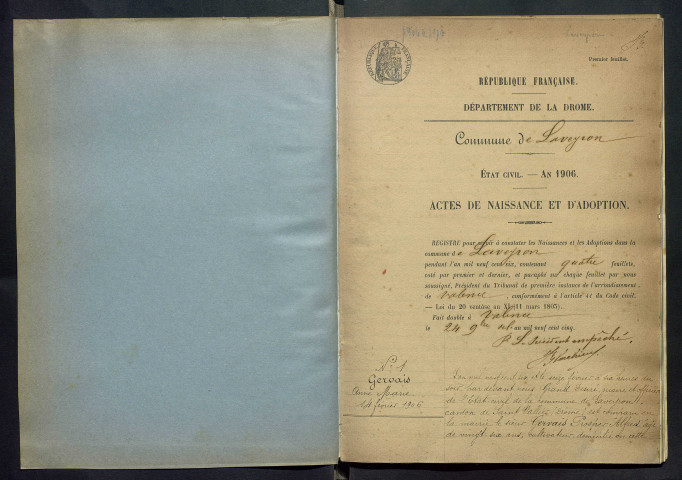 Premier feuillet.
RÉPUBLIQUE FRANÇAISE.
DÉPARTEMENT DE LA DROME.
Commune de Laveyron
ÉTAT CIVIL. — AN 1906.
ACTES DE NAISSANCE ET D'ADOPTION.
REGISTRE pour servir à constater les Naissances et les Adoptions dans la
commune de Laveyron
pendant l'an mil neuf cent six, contenant quatre feuillets,
coté par premier et dernier, et paraphé sur chaque feuillet par nous
soussigné, Président du Tribunal de première instance de l'arrondissement
de Valence, conformément à l'article 41 du Code civil.
— Loi du 20 ventôse an XI (11 mars 1803).
Fait double à Valence
le 24 9bre an mil neuf cent cinq.
P. Le Président empêché.
N° 1
Gervais
Anne Marie
14 février 1906
L'an mil neuf cent six et le seize février à heures du
soir, par devant nous maire et officier
de l'Etat civil de la commune de Laveyron,
canton de Saint Vallier (Drôme) est comparu en
la mairie le sieur Gervais Alfred âgé
de vingt six ans, cultivateur, domicilié